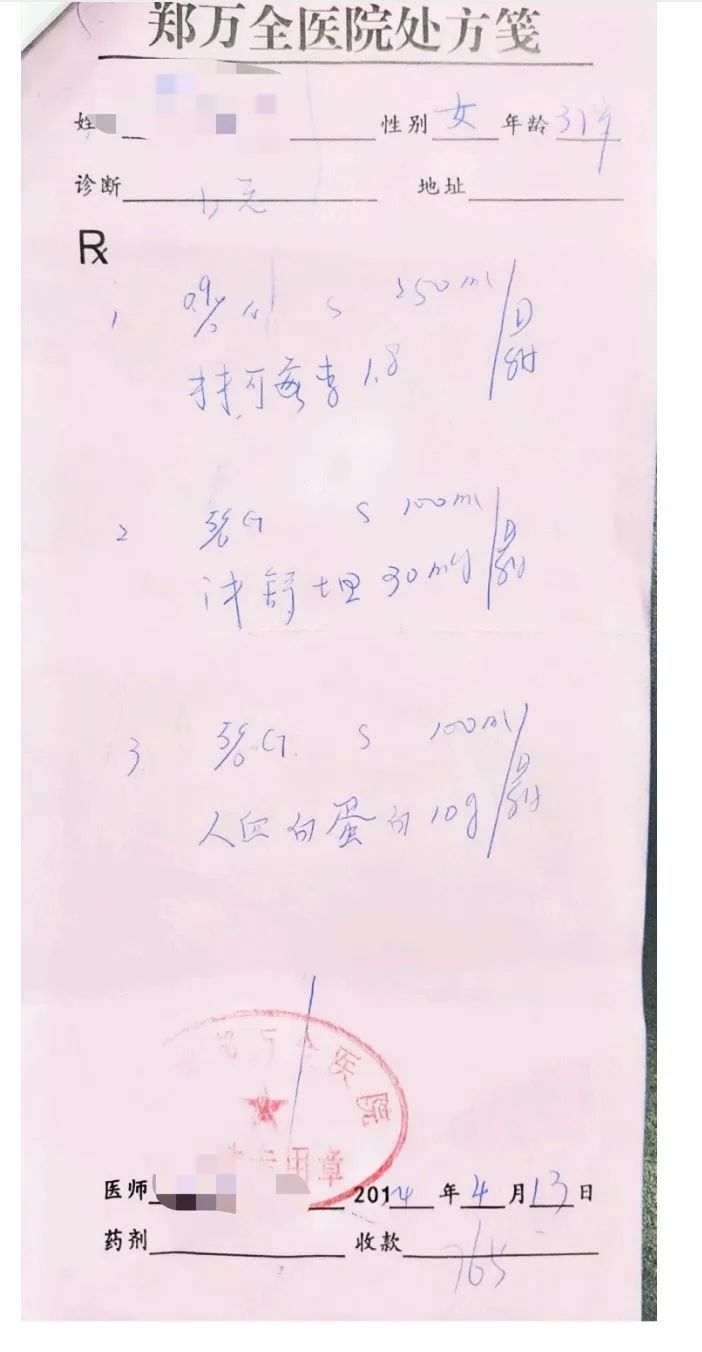 郑万全医院处方笺
姓 性别 女 年龄 31岁
诊断 地址
Rx
1 0.9% S 250ml /
1.8
2 5%G S 100ml /
沐舒坦 30mg
3. 5%G S 100ml /
人血白蛋白 10g
万全医院
专用章
医师 2014 年 4 月 13 日
药剂 收款 765